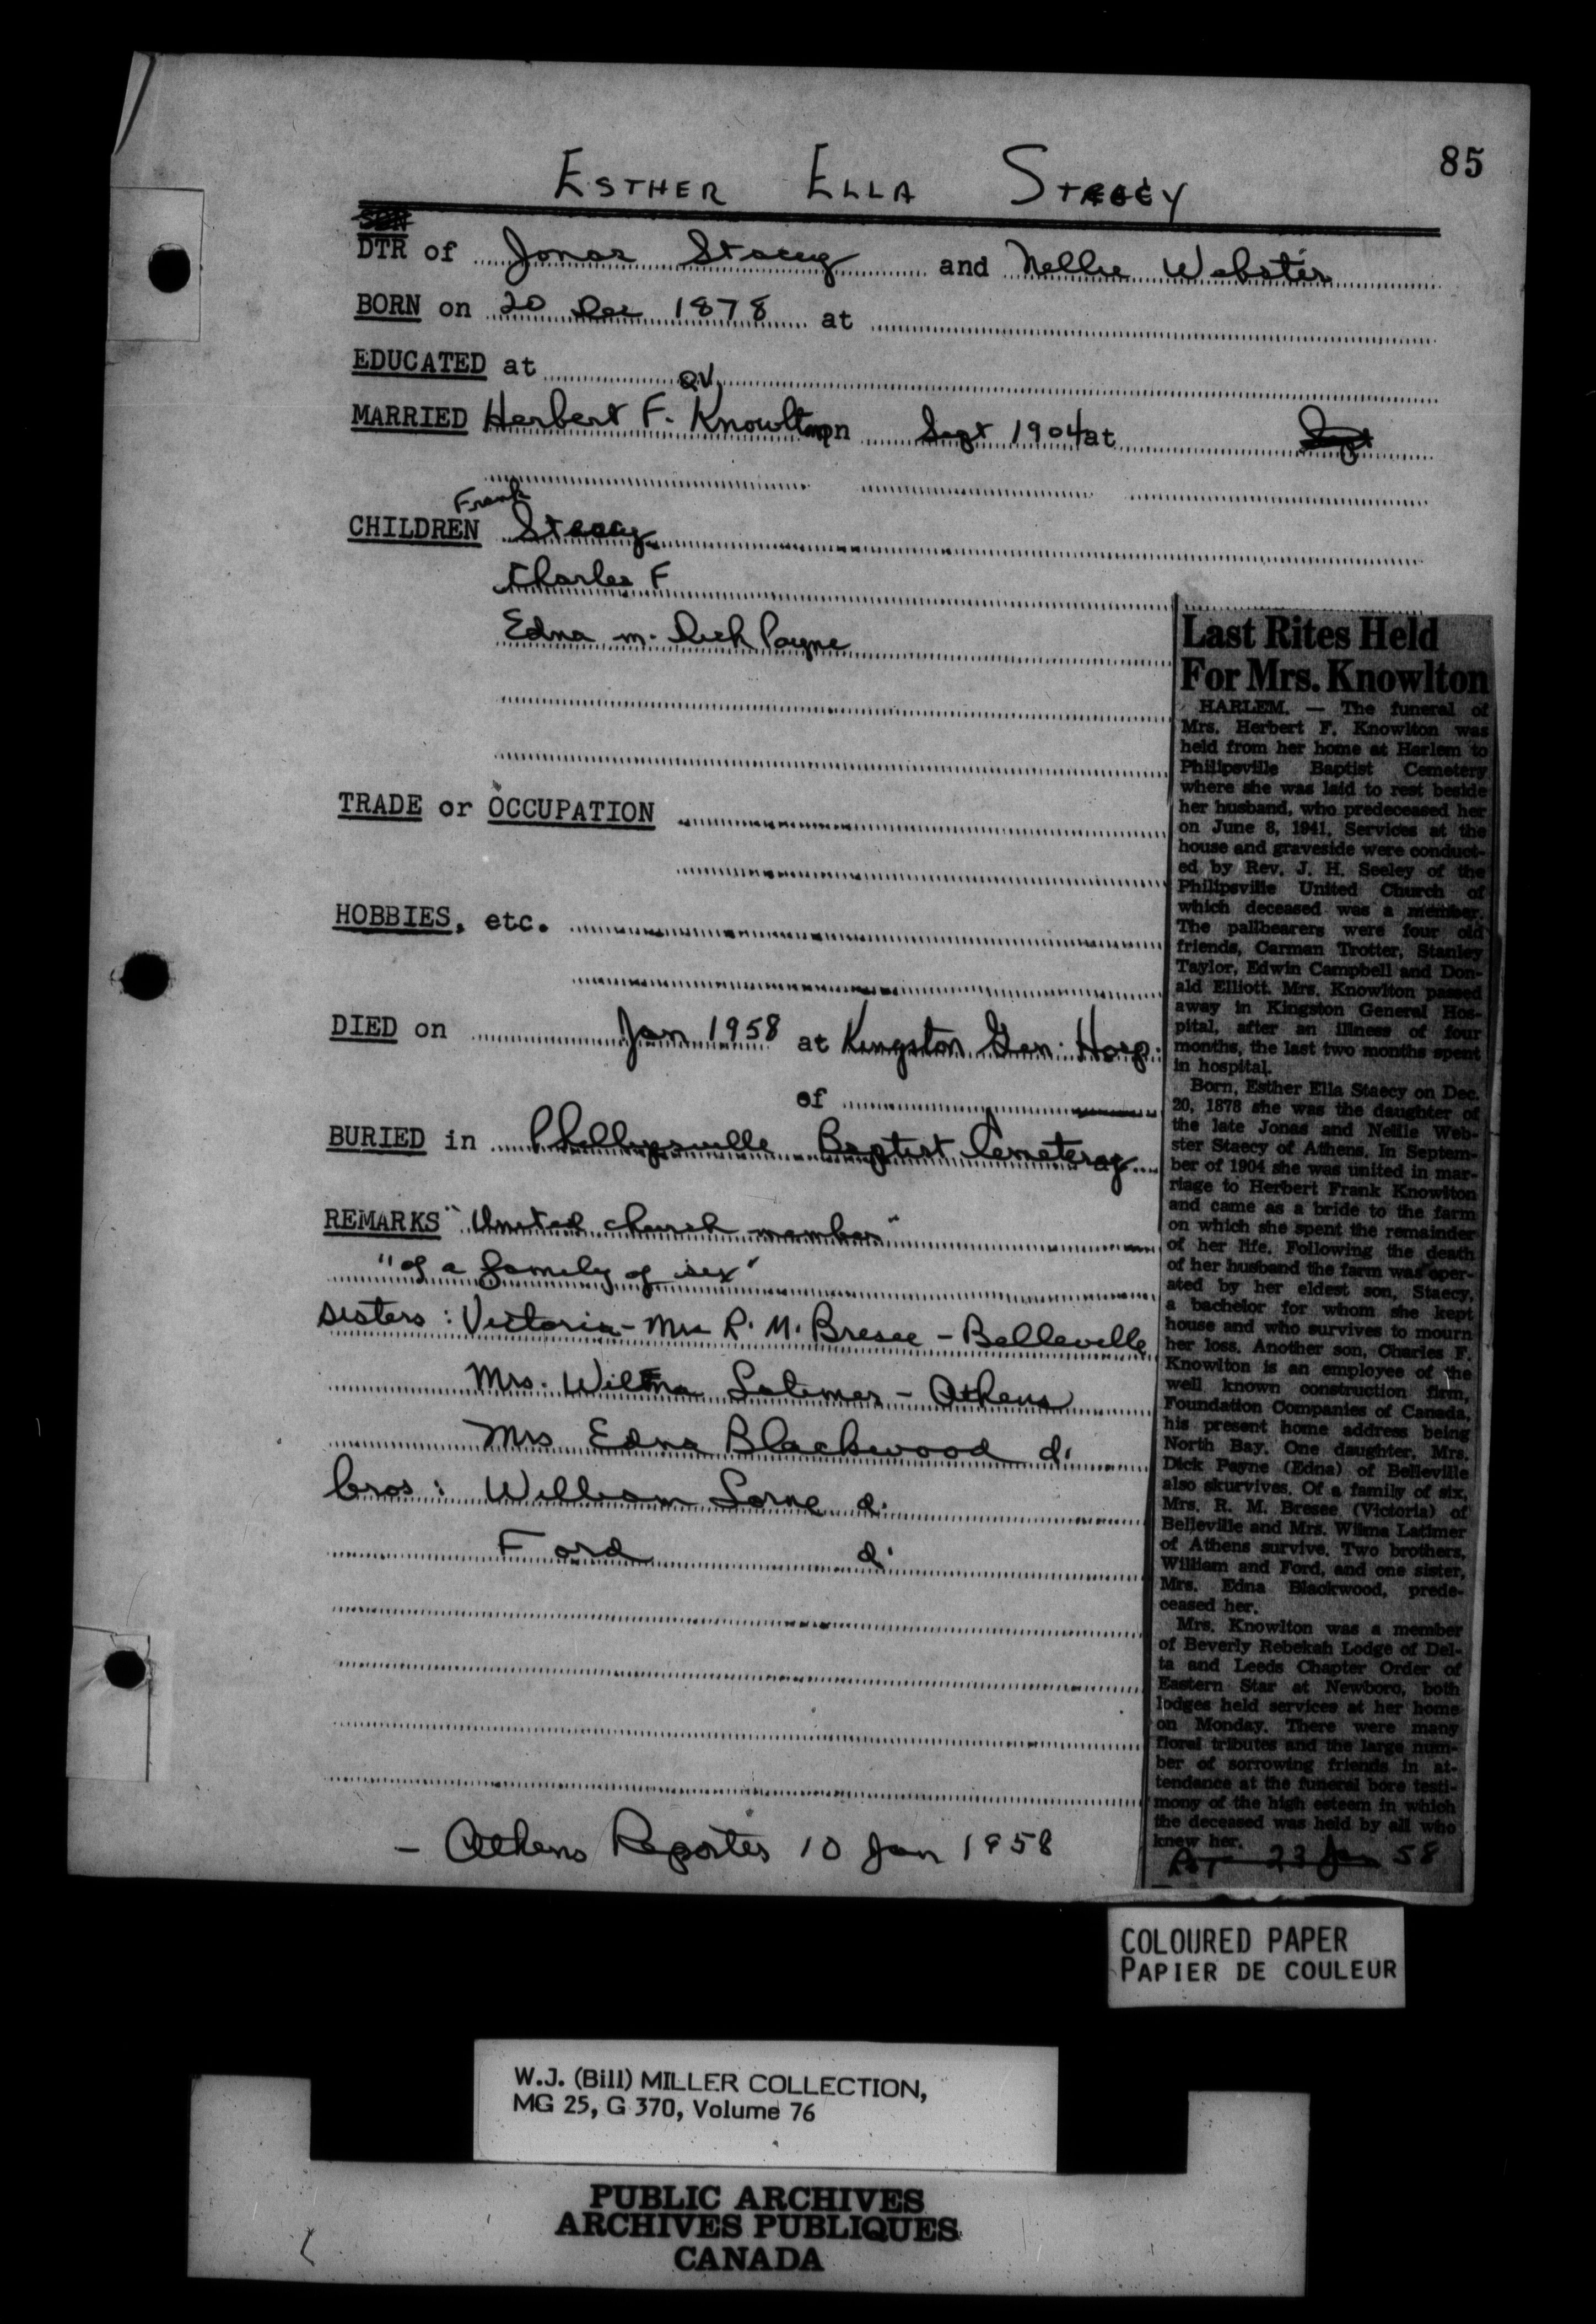 85
ESTHER ELLA STACEY
SON
DTR of Jonas Stacey and Nellie Webster
BORN on 20 Dec 1878 at
EDUCATED at
QV
MARRIED Herbert F. Knowlton on Sept 1904 at Sept
Frank
CHILDREN Staecy
Charles F
Edna m. Dick Payne
TRADE or OCCUPATION
HOBBIES, etc.
DIED on Jan 1958 at Kingston Gen. Hosp.
of
BURIED in Phillipsville Baptist Cemetery
REMARKS "United church member"
"of a family of six"
sisters: Victoria - Mrs R. M. Bresee - Belleville
Mrs. Wilma Latimer - Athens
Mrs Edna Blackwood d.
bros: William Lorne d.
Ford d.
- Athens Reporter 10 Jan 1958
Last Rites Held
For Mrs. Knowlton
HARLEM. — The funeral of
Mrs. Herbert F. Knowlton was
held from her home at Harlem to
Philipsville Baptist Cemetery
where she was laid to rest beside
her husband, who predeceased her
on June 8, 1941. Services at the
house and graveside were conduct-
ed by Rev. J. H. Seeley of the
Philipsville United Church of
which deceased was a member.
The pallbearers were four old
friends, Carman Trotter, Stanley
Taylor, Edwin Campbell and Don-
ald Elliott. Mrs. Knowlton passed
away in Kingston General Hos-
pital, after an illness of four
months, the last two months spent
in hospital.
Born, Esther Ella Staecy on Dec.
20, 1878 she was the daughter of
the late Jonas and Nellie Web-
ster Staecy of Athens. In Septem-
ber of 1904 she was united in mar-
riage to Herbert Frank Knowlton
and came as a bride to the farm
on which she spent the remainder
of her life. Following the death
of her husband the farm was oper-
ated by her eldest son, Staecy,
a bachelor for whom she kept
house and who survives to mourn
her loss. Another son, Charles F.
Knowlton is an employee of the
well known construction firm,
Foundation Companies of Canada,
his present home address being
North Bay. One daughter, Mrs.
Dick Payne (Edna) of Belleville
also skurvives. Of a family of six,
Mrs. R. M. Bresee (Victoria) of
Belleville and Mrs. Wilma Latimer
of Athens survive. Two brothers,
William and Ford, and one sister,
Mrs. Edna Blackwood, prede-
ceased her.
Mrs. Knowlton was a member
of Beverly Rebekah Lodge of Del-
ta and Leeds Chapter Order of
Eastern Star at Newboro, both
lodges held services at her home
on Monday. There were many
floral tributes and the large num-
ber of sorrowing friends in at-
tendance at the funeral bore testi-
mony of the high esteem in which
the deceased was held by all who
knew her.
23 Jan 58
COLOURED PAPER
PAPIER DE COULEUR
W.J. (Bill) MILLER COLLECTION,
MG 25, G 370, Volume 76
PUBLIC ARCHIVES
ARCHIVES PUBLIQUES
CANADA